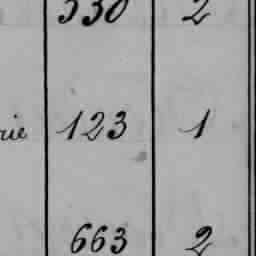 530 2
rie 123 1
663 2